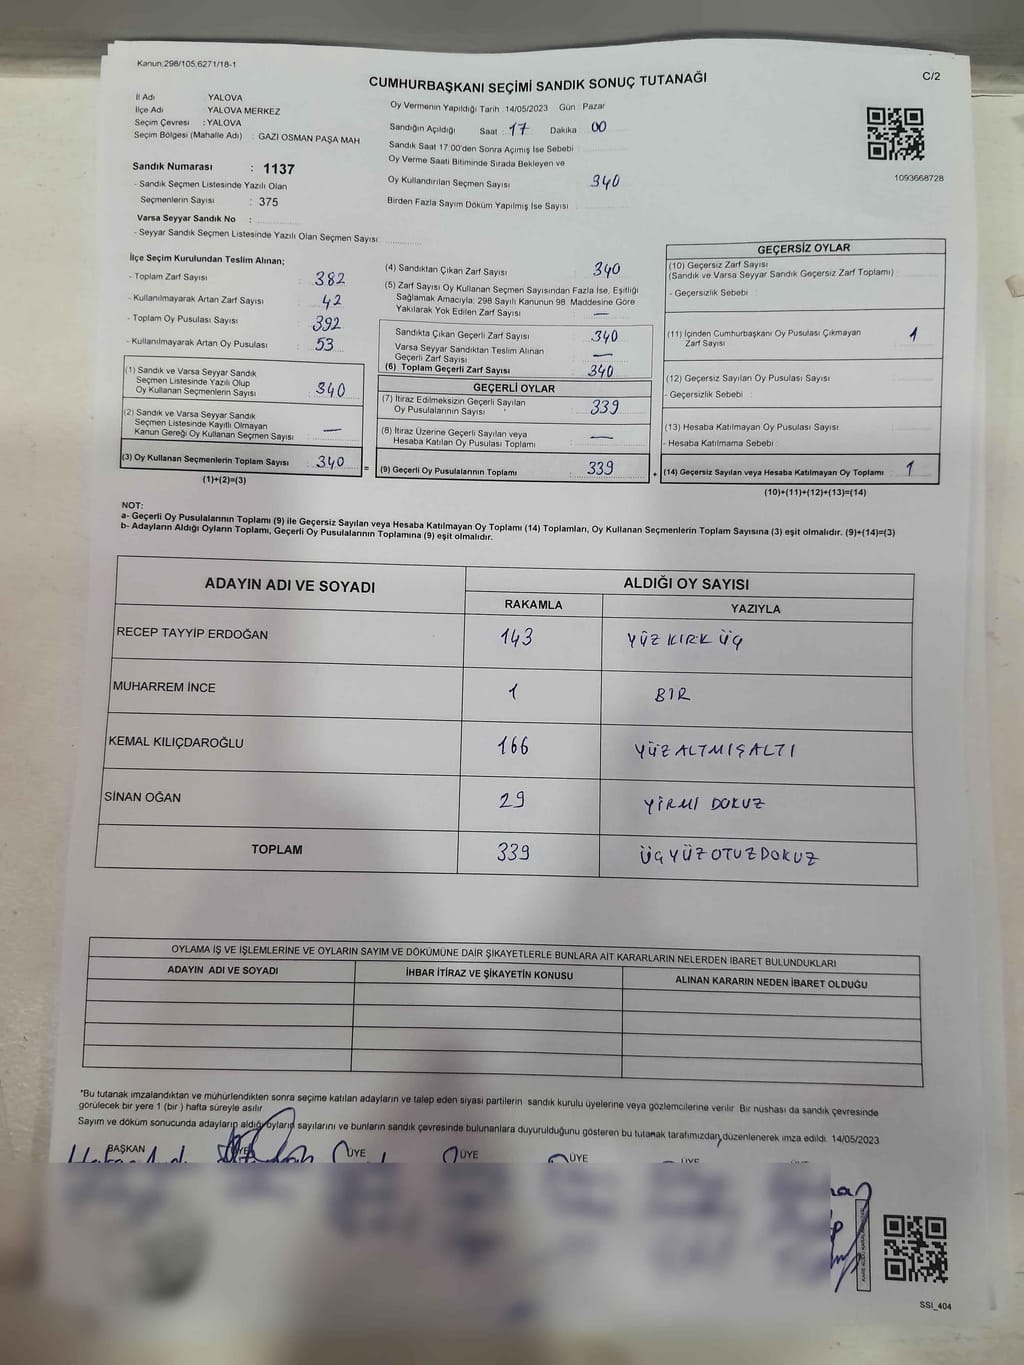 Kanun:298/105,6271/18-1
C/2
CUMHURBAŞKANI SEÇİMİ SANDIK SONUÇ TUTANAĞI
İl Adı YALOVA
İlçe Adı YALOVA MERKEZ
Seçim Çevresi : YALOVA
Seçim Bölgesi (Mahalle Adı) : GAZI OSMAN PAŞA MAH
Sandık Numarası : 1137
- Sandık Seçmen Listesinde Yazılı Olan
Seçmenlerin Sayısı : 375
Varsa Seyyar Sandık No :
- Seyyar Sandık Seçmen Listesinde Yazılı Olan Seçmen Sayısı
Oy Vermenin Yapıldığı Tarih 14/05/2023 Gün Pazar
Sandığın Açıldığı Saat 17 Dakika 00
Sandık Saat 17:00'den Sonra Açımış İse Sebebi
Oy Verme Saati Bitiminde Sırada Bekleyen ve
Oy Kullandırılan Seçmen Sayısı 340
Birden Fazla Sayım Döküm Yapılmış İse Sayısı
1093668728
İlçe Seçim Kurulundan Teslim Alınan;
- Toplam Zarf Sayısı : 382
- Kullanılmayarak Artan Zarf Sayısı : 42
- Toplam Oy Pusulası Sayısı : 392
- Kullanılmayarak Artan Oy Pusulası : 53
(1) Sandık ve Varsa Seyyar Sandık
Seçmen Listesinde Yazılı Olup
Oy Kullanan Seçmenlerin Sayısı : 340
(2) Sandık ve Varsa Seyyar Sandık
Seçmen Listesinde Kayıtlı Olmayan
Kanun Gereği Oy Kullanan Seçmen Sayısı : —
(3) Oy Kullanan Seçmenlerin Toplam Sayısı : 340 =
(1)+(2)=(3)
(4) Sandıktan Çıkan Zarf Sayısı : 340
(5) Zarf Sayısı Oy Kullanan Seçmen Sayısından Fazla İse, Eşitliği
Sağlamak Amacıyla; 298 Sayılı Kanunun 98. Maddesine Göre
Yakılarak Yok Edilen Zarf Sayısı : —
Sandıkta Çıkan Geçerli Zarf Sayısı : 340
Varsa Seyyar Sandıktan Teslim Alınan
Geçerli Zarf Sayısı : —
(6) Toplam Geçerli Zarf Sayısı : 340
GEÇERLİ OYLAR
(7) İtiraz Edilmeksizin Geçerli Sayılan
Oy Pusulalarının Sayısı : 339
(8) İtiraz Üzerine Geçerli Sayılan veya
Hesaba Katılan Oy Pusulası Toplamı : —
(9) Geçerli Oy Pusulalarının Toplamı : 339 +
GEÇERSİZ OYLAR
(10) Geçersiz Zarf Sayısı
(Sandık ve Varsa Seyyar Sandık Geçersiz Zarf Toplamı) :
- Geçersizlik Sebebi :
(11) İçinden Cumhurbaşkanı Oy Pusulası Çıkmayan
Zarf Sayısı : 1
(12) Geçersiz Sayılan Oy Pusulası Sayısı :
- Geçersizlik Sebebi :
(13) Hesaba Katılmayan Oy Pusulası Sayısı :
- Hesaba Katılmama Sebebi :
(14) Geçersiz Sayılan veya Hesaba Katılmayan Oy Toplamı : 1
(10)+(11)+(12)+(13)=(14)
NOT:
a- Geçerli Oy Pusulalarının Toplamı (9) ile Geçersiz Sayılan veya Hesaba Katılmayan Oy Toplamı (14) Toplamları, Oy Kullanan Seçmenlerin Toplam Sayısına (3) eşit olmalıdır. (9)+(14)=(3)
b- Adayların Aldığı Oyların Toplamı, Geçerli Oy Pusulalarının Toplamına (9) eşit olmalıdır.
ADAYIN ADI VE SOYADI ALDIĞI OY SAYISI
RAKAMLA YAZIYLA
RECEP TAYYİP ERDOĞAN 143 YÜZ KIRK ÜÇ
MUHARREM İNCE 1 BİR
KEMAL KILIÇDAROĞLU 166 YÜZ ALTMIŞ ALTI
SİNAN OĞAN 29 YİRMİ DOKUZ
TOPLAM 339 ÜÇ YÜZ OTUZ DOKUZ
OYLAMA İŞ VE İŞLEMLERİNE VE OYLARIN SAYIM VE DÖKÜMÜNE DAİR ŞİKAYETLERLE BUNLARA AİT KARARLARIN NELERDEN İBARET BULUNDUKLARI
ADAYIN ADI VE SOYADI İHBAR İTİRAZ VE ŞİKAYETİN KONUSU ALINAN KARARIN NEDEN İBARET OLDUĞU
*Bu tutanak imzalandıktan ve mühürlendikten sonra seçime katılan adayların ve talep eden siyasi partilerin sandık kurulu üyelerine veya gözlemcilerine verilir. Bir nüshası da sandık çevresinde
görülecek bir yere 1 (bir ) hafta süreyle asılır.
Sayım ve döküm sonucunda adayların aldığı oyların sayılarını ve bunların sandık çevresinde bulunanlara duyurulduğunu gösteren bu tutanak tarafımızdan düzenlenerek imza edildi. 14/05/2023
BAŞKAN ÜYE ÜYE ÜYE ÜYE ÜYE ÜYE
SSI_404